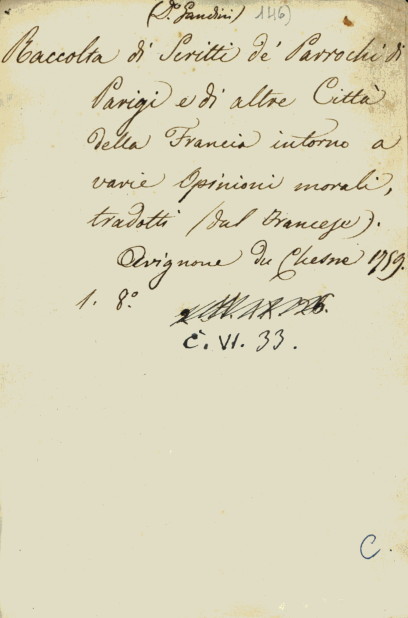 (D. Gandini) 146)
Raccolta di Scritti de' Parrochi di
Parigi e di altre Città
della Francia intorno a
varie Opinioni morali,
tradotti (dal Francese).
Avignone du Chesne 1759.
1. 8.°
C. VI. 33.
C.